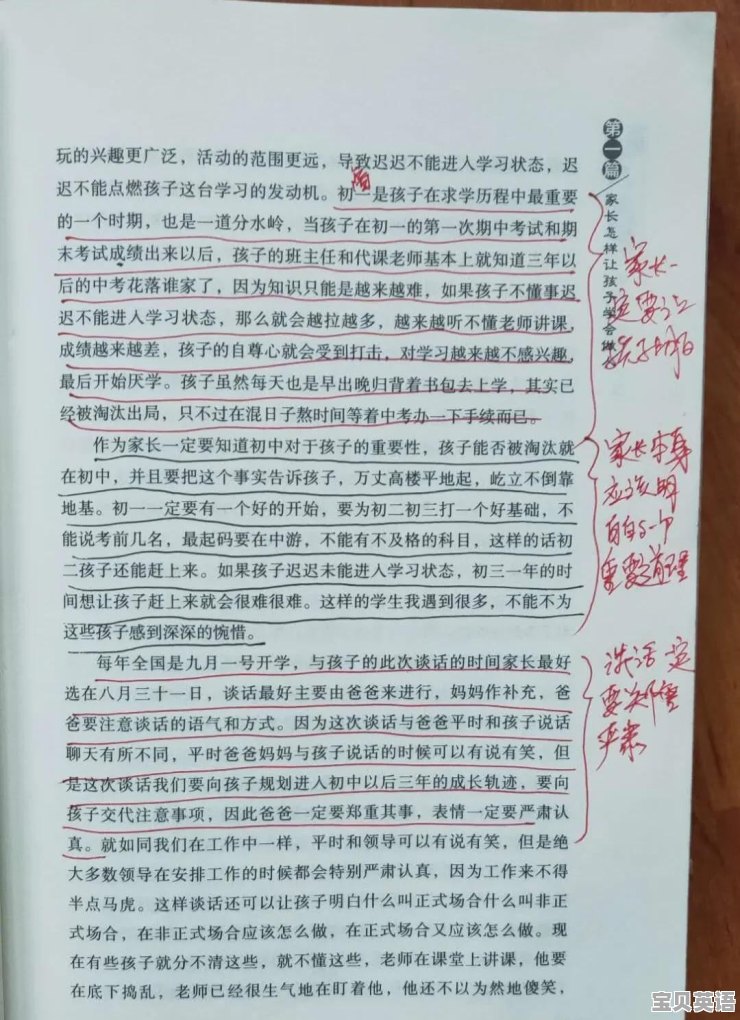 玩的兴趣更广泛，活动的范围更远，导致迟迟不能进入学习状态，迟
迟不能点燃孩子这台学习的发动机。初一是孩子在求学历程中最重要
的一个时期，也是一道分水岭，当孩子在初一的第一次期中考试和期
末考试成绩出来以后，孩子的班主任和代课老师基本上就知道三年以
后的中考花落谁家了，因为知识只能是越来越难，如果孩子不懂事迟
迟不能进入学习状态，那么就会越拉越多，越来越听不懂老师讲课，
成绩越来越差，孩子的自尊心就会受到打击，对学习越来越不感兴趣，
最后开始厌学。孩子虽然每天也是早出晚归背着书包去上学，其实已
经被淘汰出局，只不过在混日子熬时间等着中考办一下手续而已。
作为家长一定要知道初中对于孩子的重要性，孩子能否被淘汰就
在初中，并且要把这个事实告诉孩子，万丈高楼平地起，屹立不倒靠
地基。初一一定要有一个好的开始，要为初二初三打一个好基础，不
能说考前几名，最起码要在中游，不能有不及格的科目，这样的话初
二孩子还能赶上来。如果孩子迟迟未能进入学习状态，初三一年的时
间想让孩子赶上来就会很难很难。这样的学生我遇到很多，不能不为
这些孩子感到深深的惋惜。
每年全国是九月一号开学，与孩子的此次谈话的时间家长最好
选在八月三十一日，谈话最好主要由爸爸来进行，妈妈作补充，爸
爸要注意谈话的语气和方式。因为这次谈话与爸爸平时和孩子说话
聊天有所不同，平时爸爸妈妈与孩子说话的时候可以有说有笑，但
是这次谈话我们要向孩子规划进入初中以后三年的成长轨迹，要向
孩子交代注意事项，因此爸爸一定要郑重其事，表情一定要严肃认
真。就如同我们在工作中一样，平时和领导可以有说有笑，但是绝
大多数领导在安排工作的时候都会特别严肃认真，因为工作来不得
半点马虎。这样谈话还可以让孩子明白什么叫正式场合什么叫非正
式场合，在非正式场合应该怎么做，在正式场合又应该怎么做。现
在有些孩子就分不清这些，就不懂这些，老师在课堂上讲课，他要
在底下捣乱，老师已经很生气地在盯着他，他还不以为然地傻笑，
第一篇
家长怎样让孩子学会
家长一
定要让
孩子明白
家长本身
应该明
白
重要道理
谈话一定
要郑重
严肃
宝贝英语